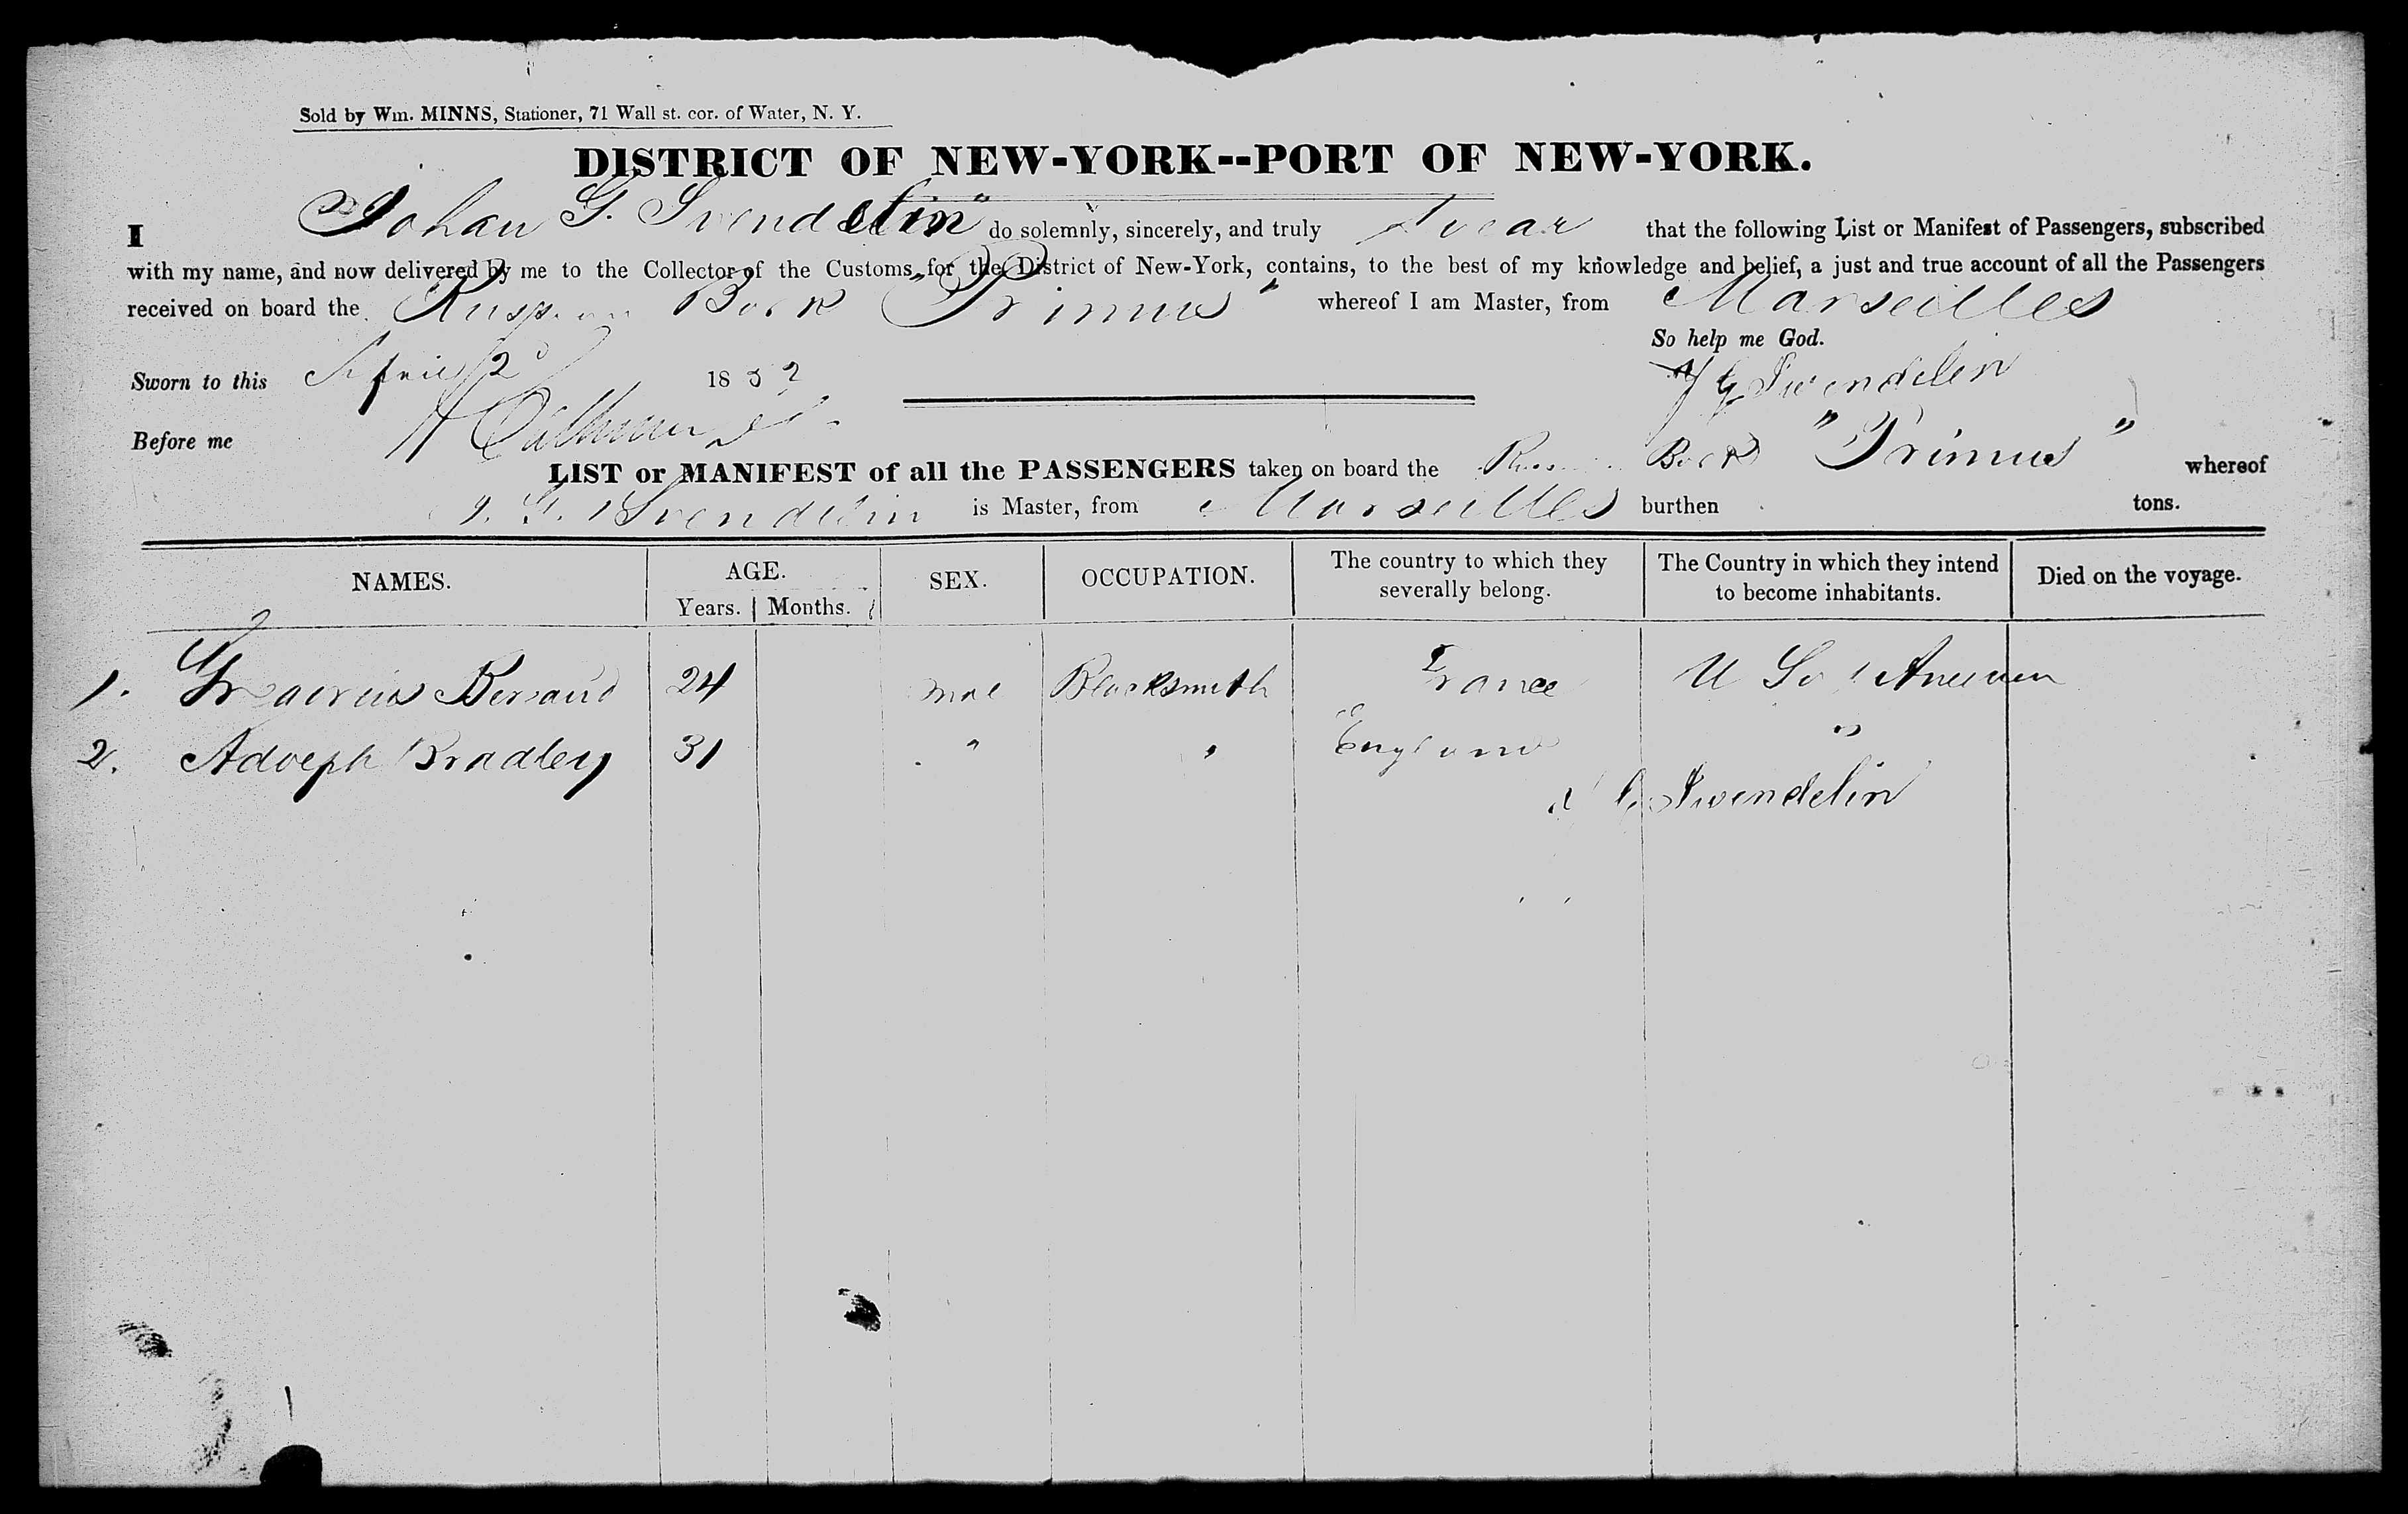 Sold by Wm. MINNS, Stationer, 71 Wall st. cor. of Water, N. Y.
DISTRICT OF NEW-YORK--PORT OF NEW-YORK.
I Johan G. Svendelin do solemnly, sincerely, and truly Svear that the following List or Manifest of Passengers, subscribed
with my name, and now delivered by me to the Collector of the Customs for the District of New-York, contains, to the best of my knowledge and belief, a just and true account of all the Passengers
received on board the Russian Bark "Primus" whereof I am Master, from Marseilles
So help me God.
Sworn to this April 2d 1852 J G Swendelin
Before me
LIST or MANIFEST of all the PASSENGERS taken on board the Russian Bark "Primus" whereof
J. G. Svendelin is Master, from Marseilles burthen tons.
NAMES. AGE. SEX. OCCUPATION. The country to which they severally belong. The Country in which they intend to become inhabitants. Died on the voyage.
Years. Months.
1. Beraud 24 male Blacksmith France U S of America
2. Adolph Bradley 31 " " England "
J G Swendelin